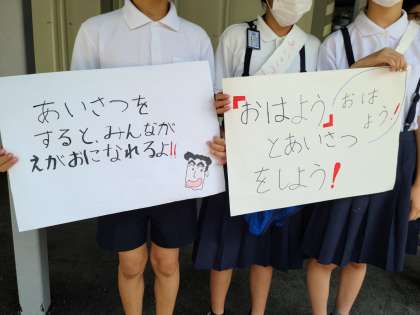 あいさつを
すると、みんなが
えがおになれるよ!!
「おはよう」
とあいさつ
をしよう!
おは
よう!